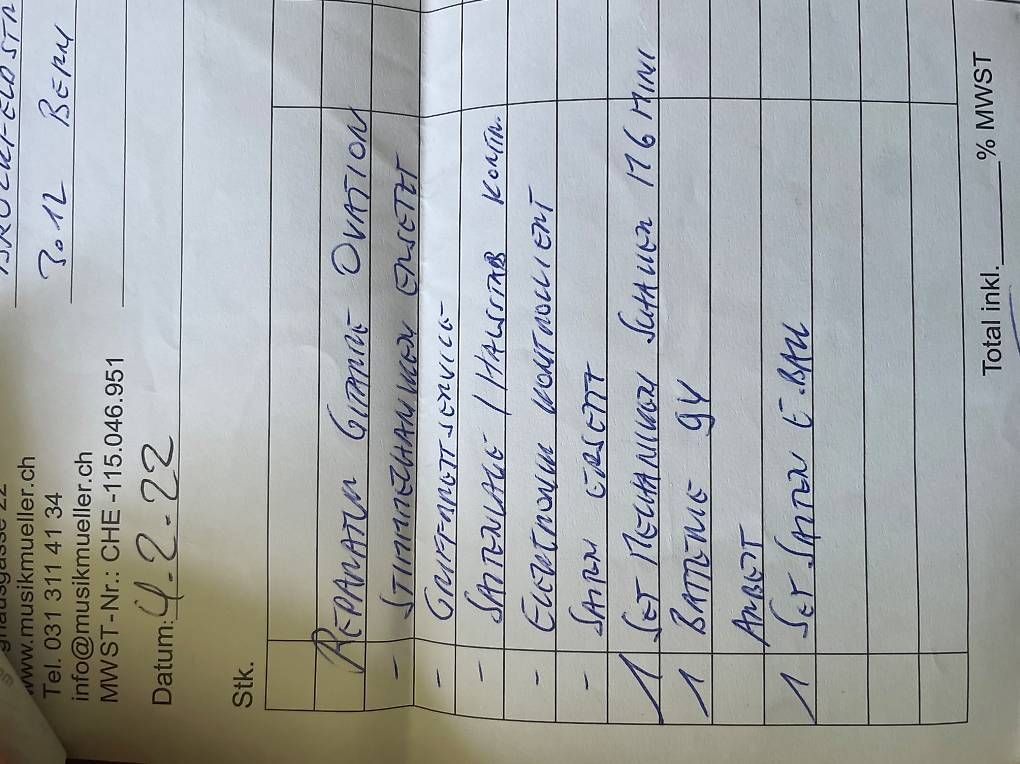 BRÜCKFELDSTR
3012 BERN
www.musikmueller.ch
Tel. 031 311 41 34
info@musikmueller.ch
MWST-Nr.: CHE -115.046.951
Datum: 4.2.22
Stk.
REPARATUR GITARRE OVATION
- STIMMECHANIKEN ERSETZT
- GRIFFBRETTSERVICE
- SAITENLAGE / HALSSTAB KONTR.
- ELEKTRONIK KONTROLLIERT
- SAITEN ERSETZT
1 SET MECHANIKEN SCHALLER M6 MINI
1 BATTERIE 9V
ARBEIT
1 SET SAITEN E.BALL
Total inkl. % MWST